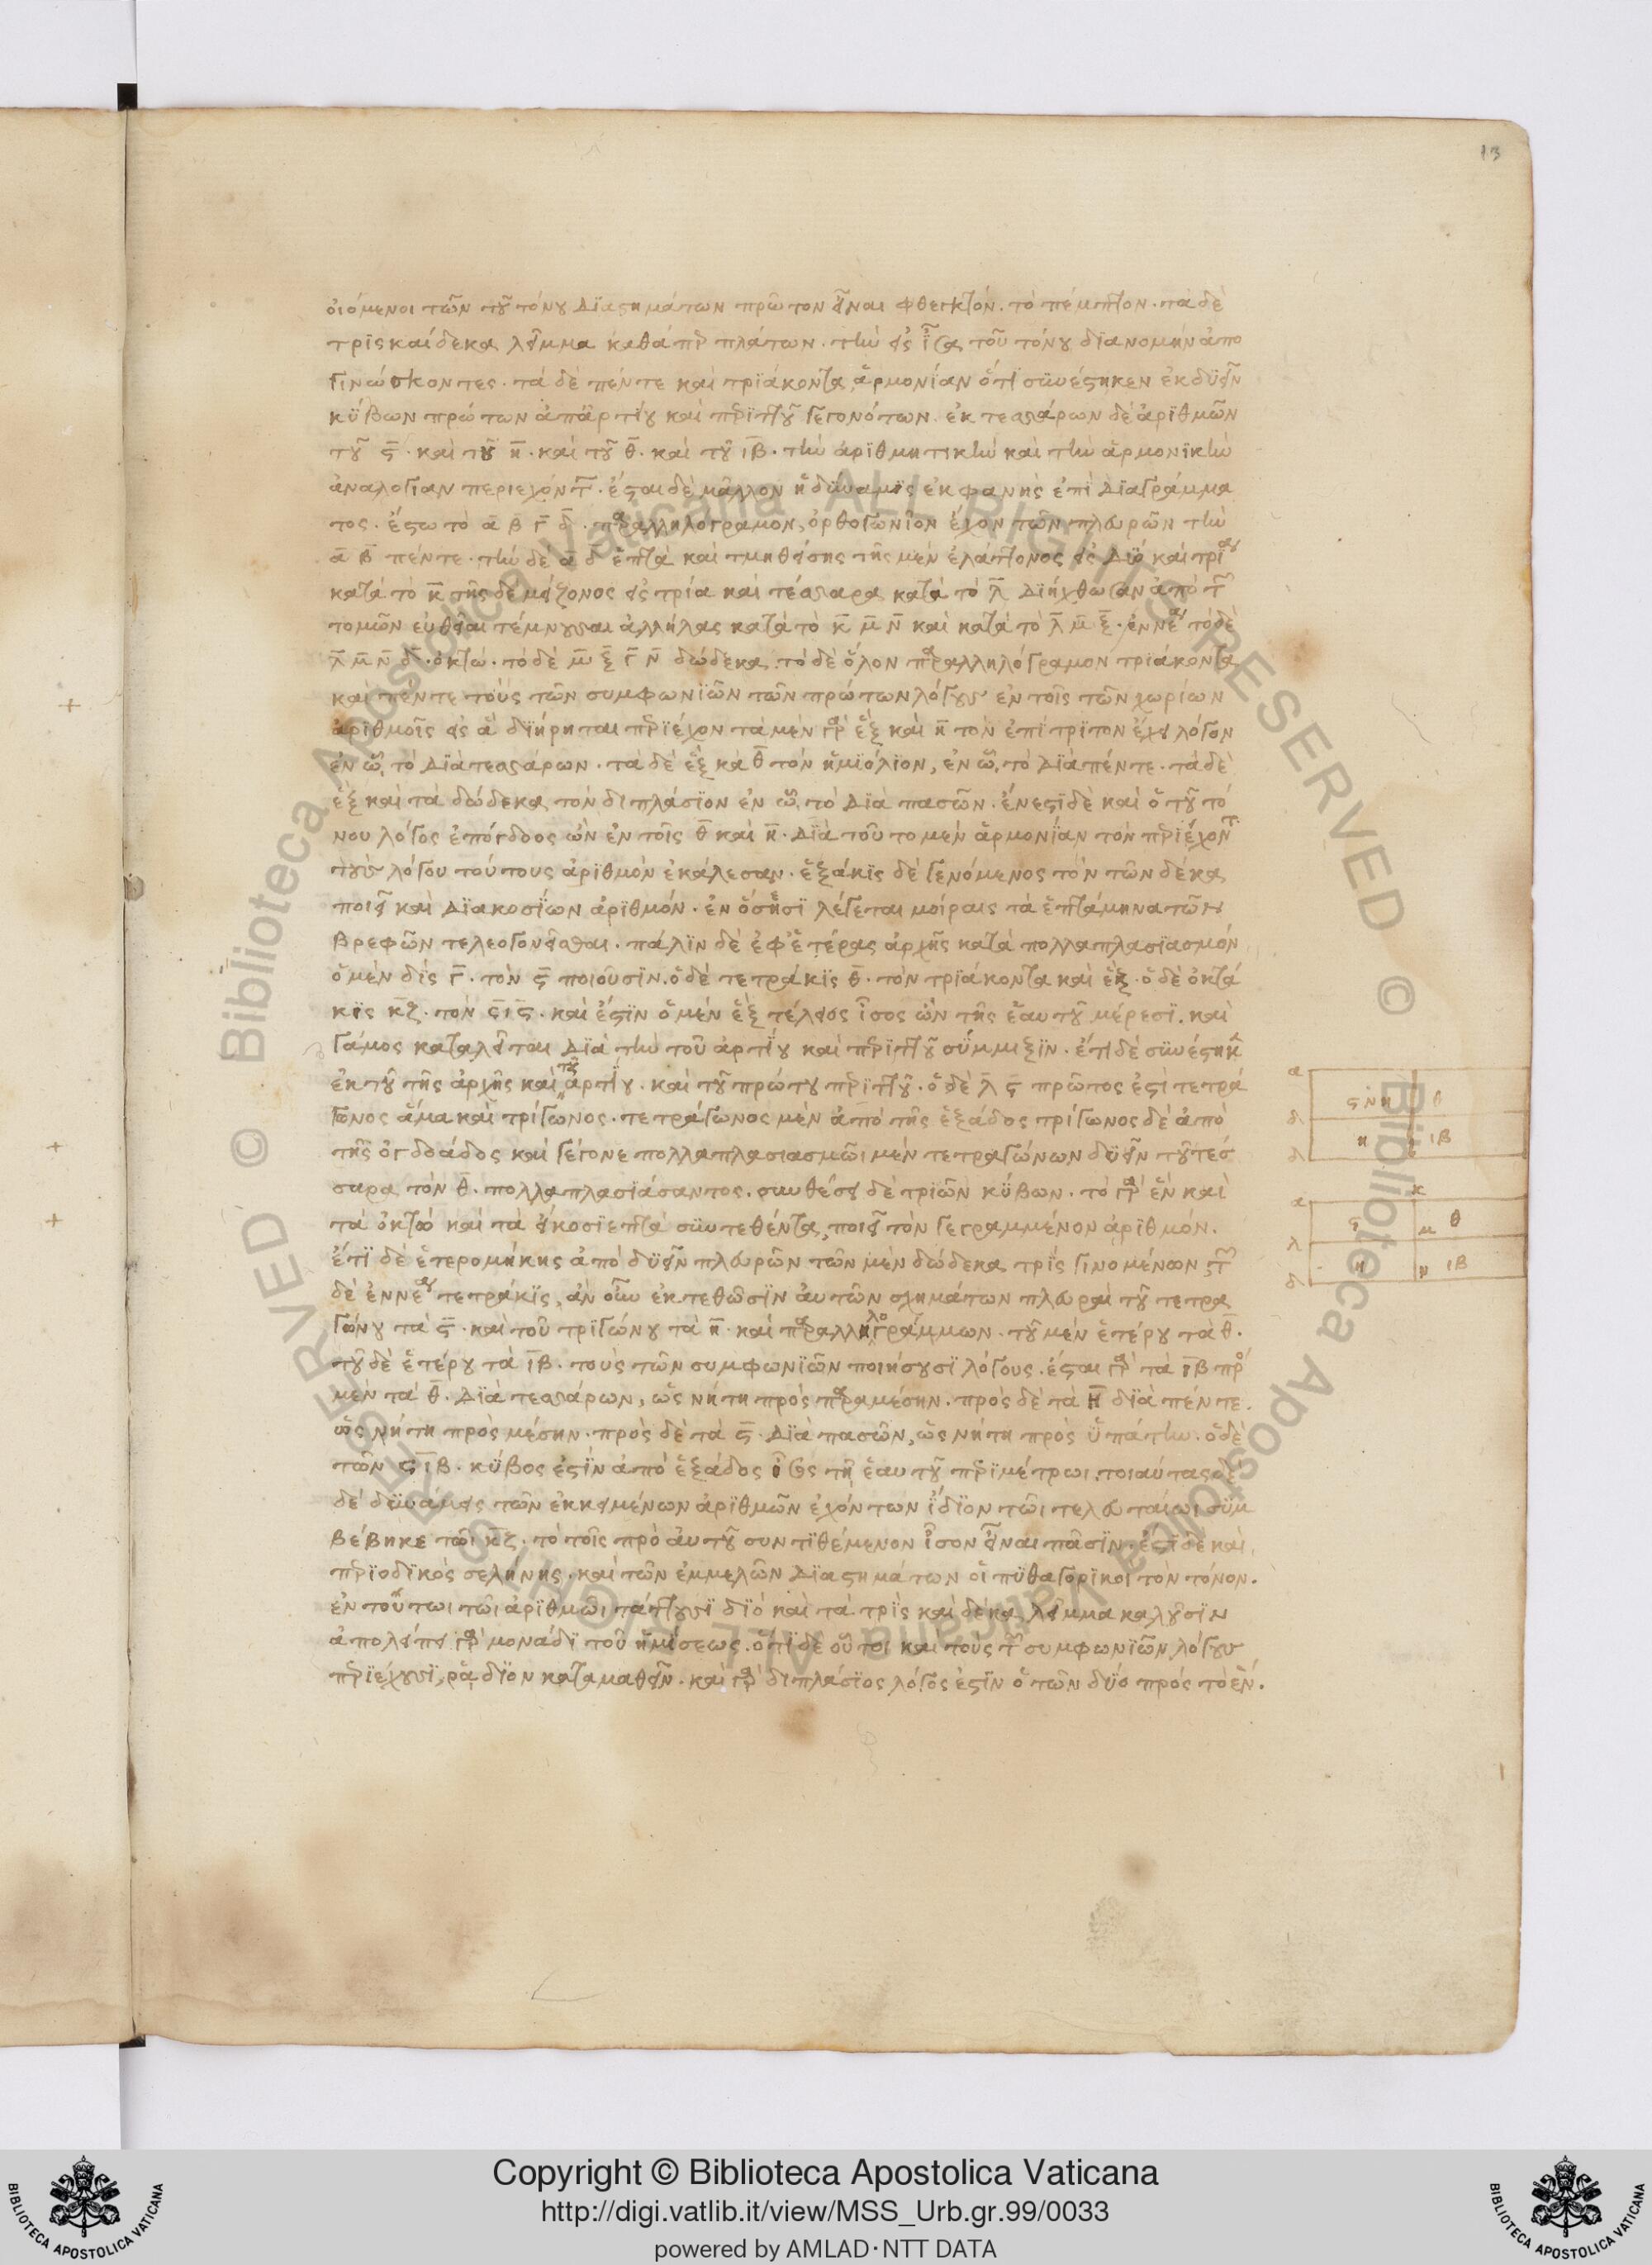 13
οἰόμενοι τῶν τοῦ τόνου διαστημάτων πρῶτον εἶναι φθεγκτόν. τὸ πέμπτον. τὰ δὲ
τρὶς καίδεκα λεῖμμα καθάπερ πλάτων. τὴν εἰς ἴσα τοῦ τόνου διανομὴν ἀπο
γινώσκοντες. τὰ δὲ πέντε καὶ τριάκοντα ἁρμονίαν ὅτι συνέστηκεν ἐκ δυεῖν
κύβων πρώτων ἀπ' ἀρτίου καὶ περιττοῦ γεγονότων. ἐκ τεσσάρων δὲ ἀριθμῶν
τοῦ ϛ̄. καὶ τοῦ η̄. καὶ τοῦ θ̄. καὶ τοῦ ιβ̄. τὴν ἀριθμητικὴν καὶ τὴν ἁρμονικὴν
ἀναλογίαν περιεχόντων. ἔσται δὲ μᾶλλον ἡ δύναμις ἐκφανὴς ἐπὶ διαγράμμα
τος. ἔστω τὸ ᾱ β̄ γ̄ δ̄. παραλληλόγραμον, ὀρθογώνιον ἔχον τῶν πλευρῶν τὴν
ᾱ β̄ πέντε. τὴν δὲ ᾱ δ̄ ἑπτὰ καὶ τμηθείσης τῆς μὲν ἐλάττονος εἰς δύο καὶ τρία
κατὰ τὸ κ̄ τῆς δὲ μείζονος εἰς τρία καὶ τέσσαρα κατὰ τὸ λ̄ διήχθωσαν ἀπὸ τῶν
τομῶν εὐθεῖαι τέμνουσαι ἀλλήλας κατὰ τὸ κ̄ μ̄ ν̄ καὶ κατὰ τὸ λ̄ μ̄ ξ̄. ἐννέα τὸ δὲ
λ̄ μ̄ ν̄ δ̄. ὀκτώ. τὸ δὲ μ̄ ξ̄ γ̄ ν̄ δώδεκα. τὸ δὲ ὅλον παραλληλόγραμον τριάκοντα
καὶ πέντε τοὺς τῶν συμφωνιῶν τῶν πρώτων λόγους ἐν τοῖς τῶν χωρίων
ἀριθμοῖς εἰς ἃ διήρηται περιέχον τὰ μὲν γὰρ ἓξ καὶ η̄ τὸν ἐπίτριτον ἔχει λόγον
ἐν ᾧ, τὸ διὰ τεσσάρων. τὰ δὲ ἓξ κὰ θ̄ τὸν ἡμιόλιον, ἐν ᾧ, τὸ διὰ πέντε. τὰ δὲ
ἓξ καὶ τὰ δώδεκα τὸν διπλάσιον ἐν ᾧ τὸ διὰ πασῶν. ἔνεστι δὲ καὶ ὁ τοῦ τό
νου λόγος ἐπόγδοος ὢν ἐν τοῖς θ̄ καὶ η̄. διὰ τοῦτο μὲν ἁρμονίαν τὸν περιέχοντα
τοὺς λόγου τούτους ἀριθμὸν ἐκάλεσαν. ἑξάκις δὲ γενόμενος τὸν τῶν δέκα
ποιεῖ καὶ διακοσίων ἀριθμόν. ἐν ὅσησι λέγεται μοίραις τὰ ἑπτάμηνα τῶν
βρεφῶν τελεογονεῖσθαι. πάλιν δὲ ἐφ' ἑτέρας ἀρχῆς κατὰ πολλαπλασιασμόν,
ὁ μὲν δὶς γ̄. τὸν ϛ̄ ποιοῦσιν. ὁ δὲ τετράκις θ̄. τὸν τριάκοντα καὶ ἕξ. ὁ δὲ ὀκτά
κις κ̄ζ. τὸν ϛ̄ιϛ̄. καὶ ἔστιν ὁ μὲν ἓξ τέλειος ἴσος ὢν τῆς ἑαυτοῦ μέρεσι. καὶ
γάμος καταλεῖται διὰ τὴν τοῦ ἀρτίου καὶ περιττοῦ σύμμιξιν. ἔτι δὲ συνέστηκε
ἐκ τοῦ τῆς ἀρχῆς καὶ ἀρτίου. καὶ τοῦ πρώτου περιττοῦ. ὁ δὲ λ̄ ϛ̄ πρῶτος ἐστὶ τετρά
γωνος ἅμα καὶ τρίγωνος. τετράγωνος μὲν ἀπὸ τῆς ἑξάδος τρίγωνος δὲ ἀπὸ
τῆς ὀγδοάδος καὶ γέγονε πολλαπλασιασμῶι μὲν τετραγώνων δυεῖν τοῦ τέσ
σαρα τὸν θ̄. πολλαπλασιάσαντος. συνθέσει δὲ τριῶν κύβων. τὸ γὰρ ἓν καὶ
τὰ ὀκτὼ καὶ τὰ εἰκοσιεπτὰ συντεθέντα, ποιεῖ τὸν γεγραμμένον ἀριθμόν.
ἔτι δὲ ἑτερομήκης ἀπὸ δυεῖν πλευρῶν τῶν μὲν δώδεκα τρὶς γινομένων, τῶν
δὲ ἐννέα τετράκις, ἂν οὖν ἐκτεθῶσιν ἀυτῶν σχημάτων πλευραὶ τοῦ τετρα
γώνου τὰ ϛ̄. καὶ τοῦ τριγώνου τὰ η̄. καὶ παραλληλογράμμων. τοῦ μὲν ἑτέρου τὰ θ̄.
τοῦ δὲ ἑτέρου τὰ ιβ̄. τοὺς τῶν συμφωνιῶν ποιήσουσι λόγους. ἔσται γὰρ τὰ ιβ̄ πρὸς
μὲν τὰ θ̄. διὰ τεσσάρων, ὡς νήτη πρὸς παραμέσην. πρὸς δὲ τὰ η̄ διὰ πέντε.
ὡς νήτη πρὸς μέσην. πρὸς δὲ τὰ ϛ̄. διὰ πασῶν, ὡς νήτη πρὸς ὑπάτην. ὁ δὲ
τῶν ϛ̄ ιβ̄. κύβος ἐστὶν ἀπὸ ἑξάδος ἴσος τῆ ἑαυτοῦ περιμέτρωι. τοιαύτας
δὲ δυνάμεις τῶν ἐκκειμένων ἀριθμῶν ἐχόντων ἴδιον τῶι τελευταίωι σύμ
βέβηκε τῶι κ̄ζ. τὸ τοῖς πρὸ ἀυτοῦ συντιθέμενον ἴσον εἶναι πᾶσιν. ἔστι δὲ καὶ
περιοδικὸς σελήνης. καὶ τῶν ἐμμελῶν διαστημάτων οἱ πυθαγορικοὶ τὸν τόνον.
ἐν τούτωι τῶι ἀριθμῶι τάττουσι διὸ καὶ τὰ τρὶς καὶ δέκα λεῖμμα καλοῦσιν
ἀπολείπει γὰρ μονάδι τοῦ ἡμίσεως. ὅτι δὲ οὗτοι καὶ τοὺς τῶν συμφωνιῶν λόγους
περιέχουσι, ῥάδιον καταμαθεῖν. καὶ γὰρ διπλάσιος λόγος ἐστὶν ὁ τῶν δύο πρὸς τὸ ἕν.
α
θ
δ
η ιβ
δ
κ
α
ϛ μ θ
λ
η ν ιβ
δ
© Biblioteca Apostolica Vaticana ALL RIGHTS RESERVED
Copyright © Biblioteca Apostolica Vaticana
http://digi.vatlib.it/view/MSS_Urb.gr.99/0033
powered by AMLAD·NTT DATA
BIBLIOTECA APOSTOLICA VATICANA
BIBLIOTECA APOSTOLICA VATICANA